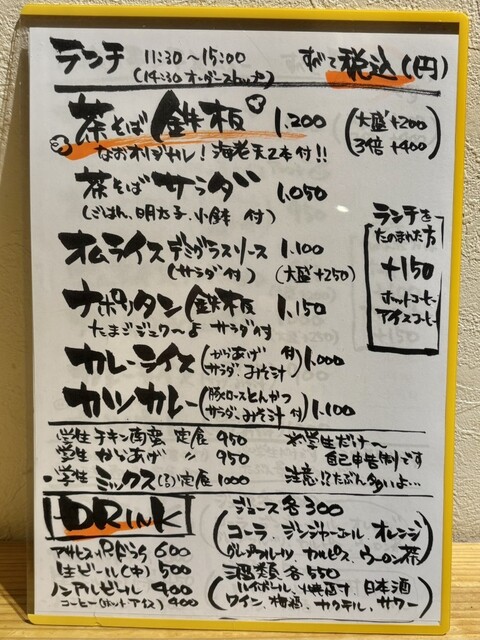 ランチ 11:30〜15:00 すべて税込(円)
(14:30 オーダーストップ)
茶そば鉄板 1,200 (大盛+200 3倍+400)
なおオリジナル!海老天2本付!!
茶そばサラダ 1,050
(ごはん、明太子、小鉢 付)
オムライスデミグラスソース 1,100
(サラダ付) (大盛+250)
ナポリタン鉄板 1,150
たまごジュワ〜よ サラダ付
カレーライス (からあげ サラダ、みそ汁 付) 1,000
カツカレー (豚ロースとんかつ サラダ、みそ汁 付) 1,100
ランチを
たのまれた方
+150
ホットコーヒー
アイスコーヒー
学生 チキン南蛮 定食 950
学生 からあげ 〃 950
・学生 ミックス(3)定食 1000
※学生だけ〜
自己申告制です
注意!!たぶん多いよ…
DRINK
アサヒスーパードライ 600
生ビール(中) 500
ノンアルビール 400
コーヒー(ホット アイス) 400
ジュース 各300
(コーラ、ジンジャーエール、オレンジ
グレープフルーツ、カルピス、ウーロン茶)
酒類 各550
(ハイボール、焼酎、日本酒
ワイン、梅酒、カクテル、サワー)